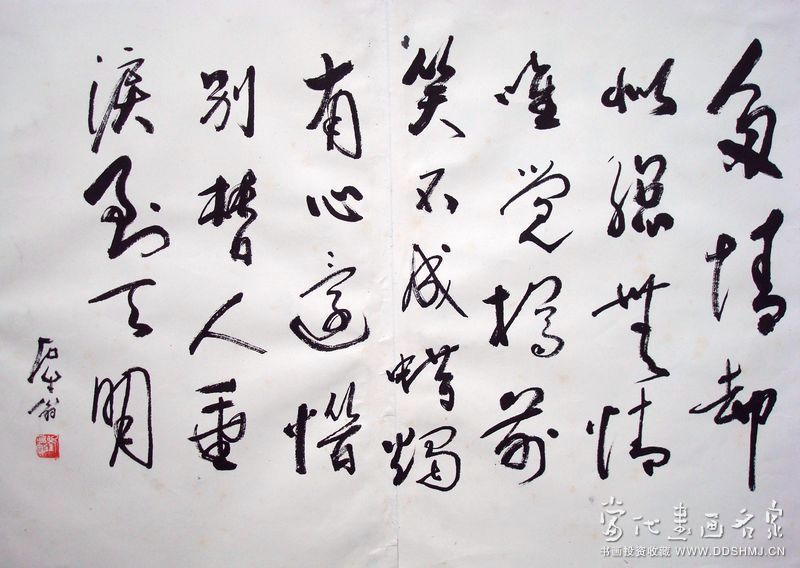 多情却
似總無情
唯觉樽前
笑不成蜡燭
有心還惜
别替人垂
淚到天明
當代書画名家
书画投资收藏 WWW.DDSHMJ.CN